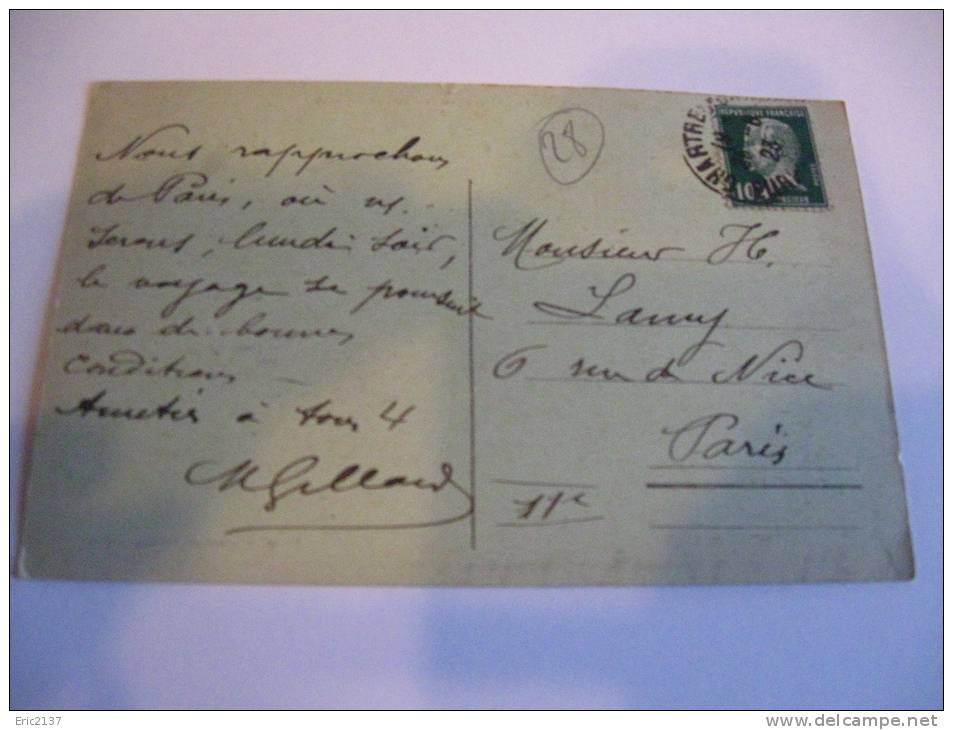 Nous rapprochons
de Paris, où ns.
serons, lundi soir,
le voyage se poursuit
dans de bonnes
conditions
Amitiés à tous 4
MGillard
28
CHARTRES
23
REPUBLIQUE FRANÇAISE
10
Monsieur H.
Lamy
6 rue de Nice
Paris
11e
Eric2137
www.delcampe.net